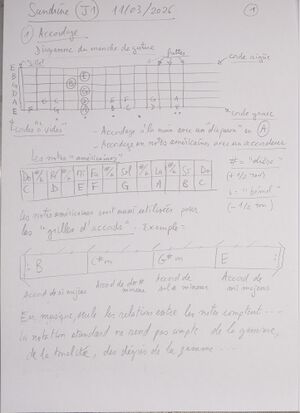 Sandrine (J1) 11/03/2026 (1)
(1) Accordage.
Diagramme du manche de guitare
Sillet
frettes
corde aigüe
E
B
G
D
A
E
corde grave
"cordes à vides"
- Accordage à la main avec un "diapason" en (A)
- Accordage en notes américaines avec un accordeur
Les notes "américaines"
Do #/b Ré #/b Mi Fa #/b Sol #/b La #/b Si Do
C D E F G A B C
# = "dièse"
(+ 1/2 ton)
b = "bémol"
(- 1/2 ton)
Les notes américaines sont aussi utilisées pour
les "grilles d'accords". Exemple :
B C#m G#m E
Accord de si majeur
Accord de do# mineur
Accord de sol# mineur
Accord de mi majeur
En musique, seule les relations entre les notes comptent....
la notation standard ne rend pas compte de la gamme,
de la tonalité, des degrés de la gamme....